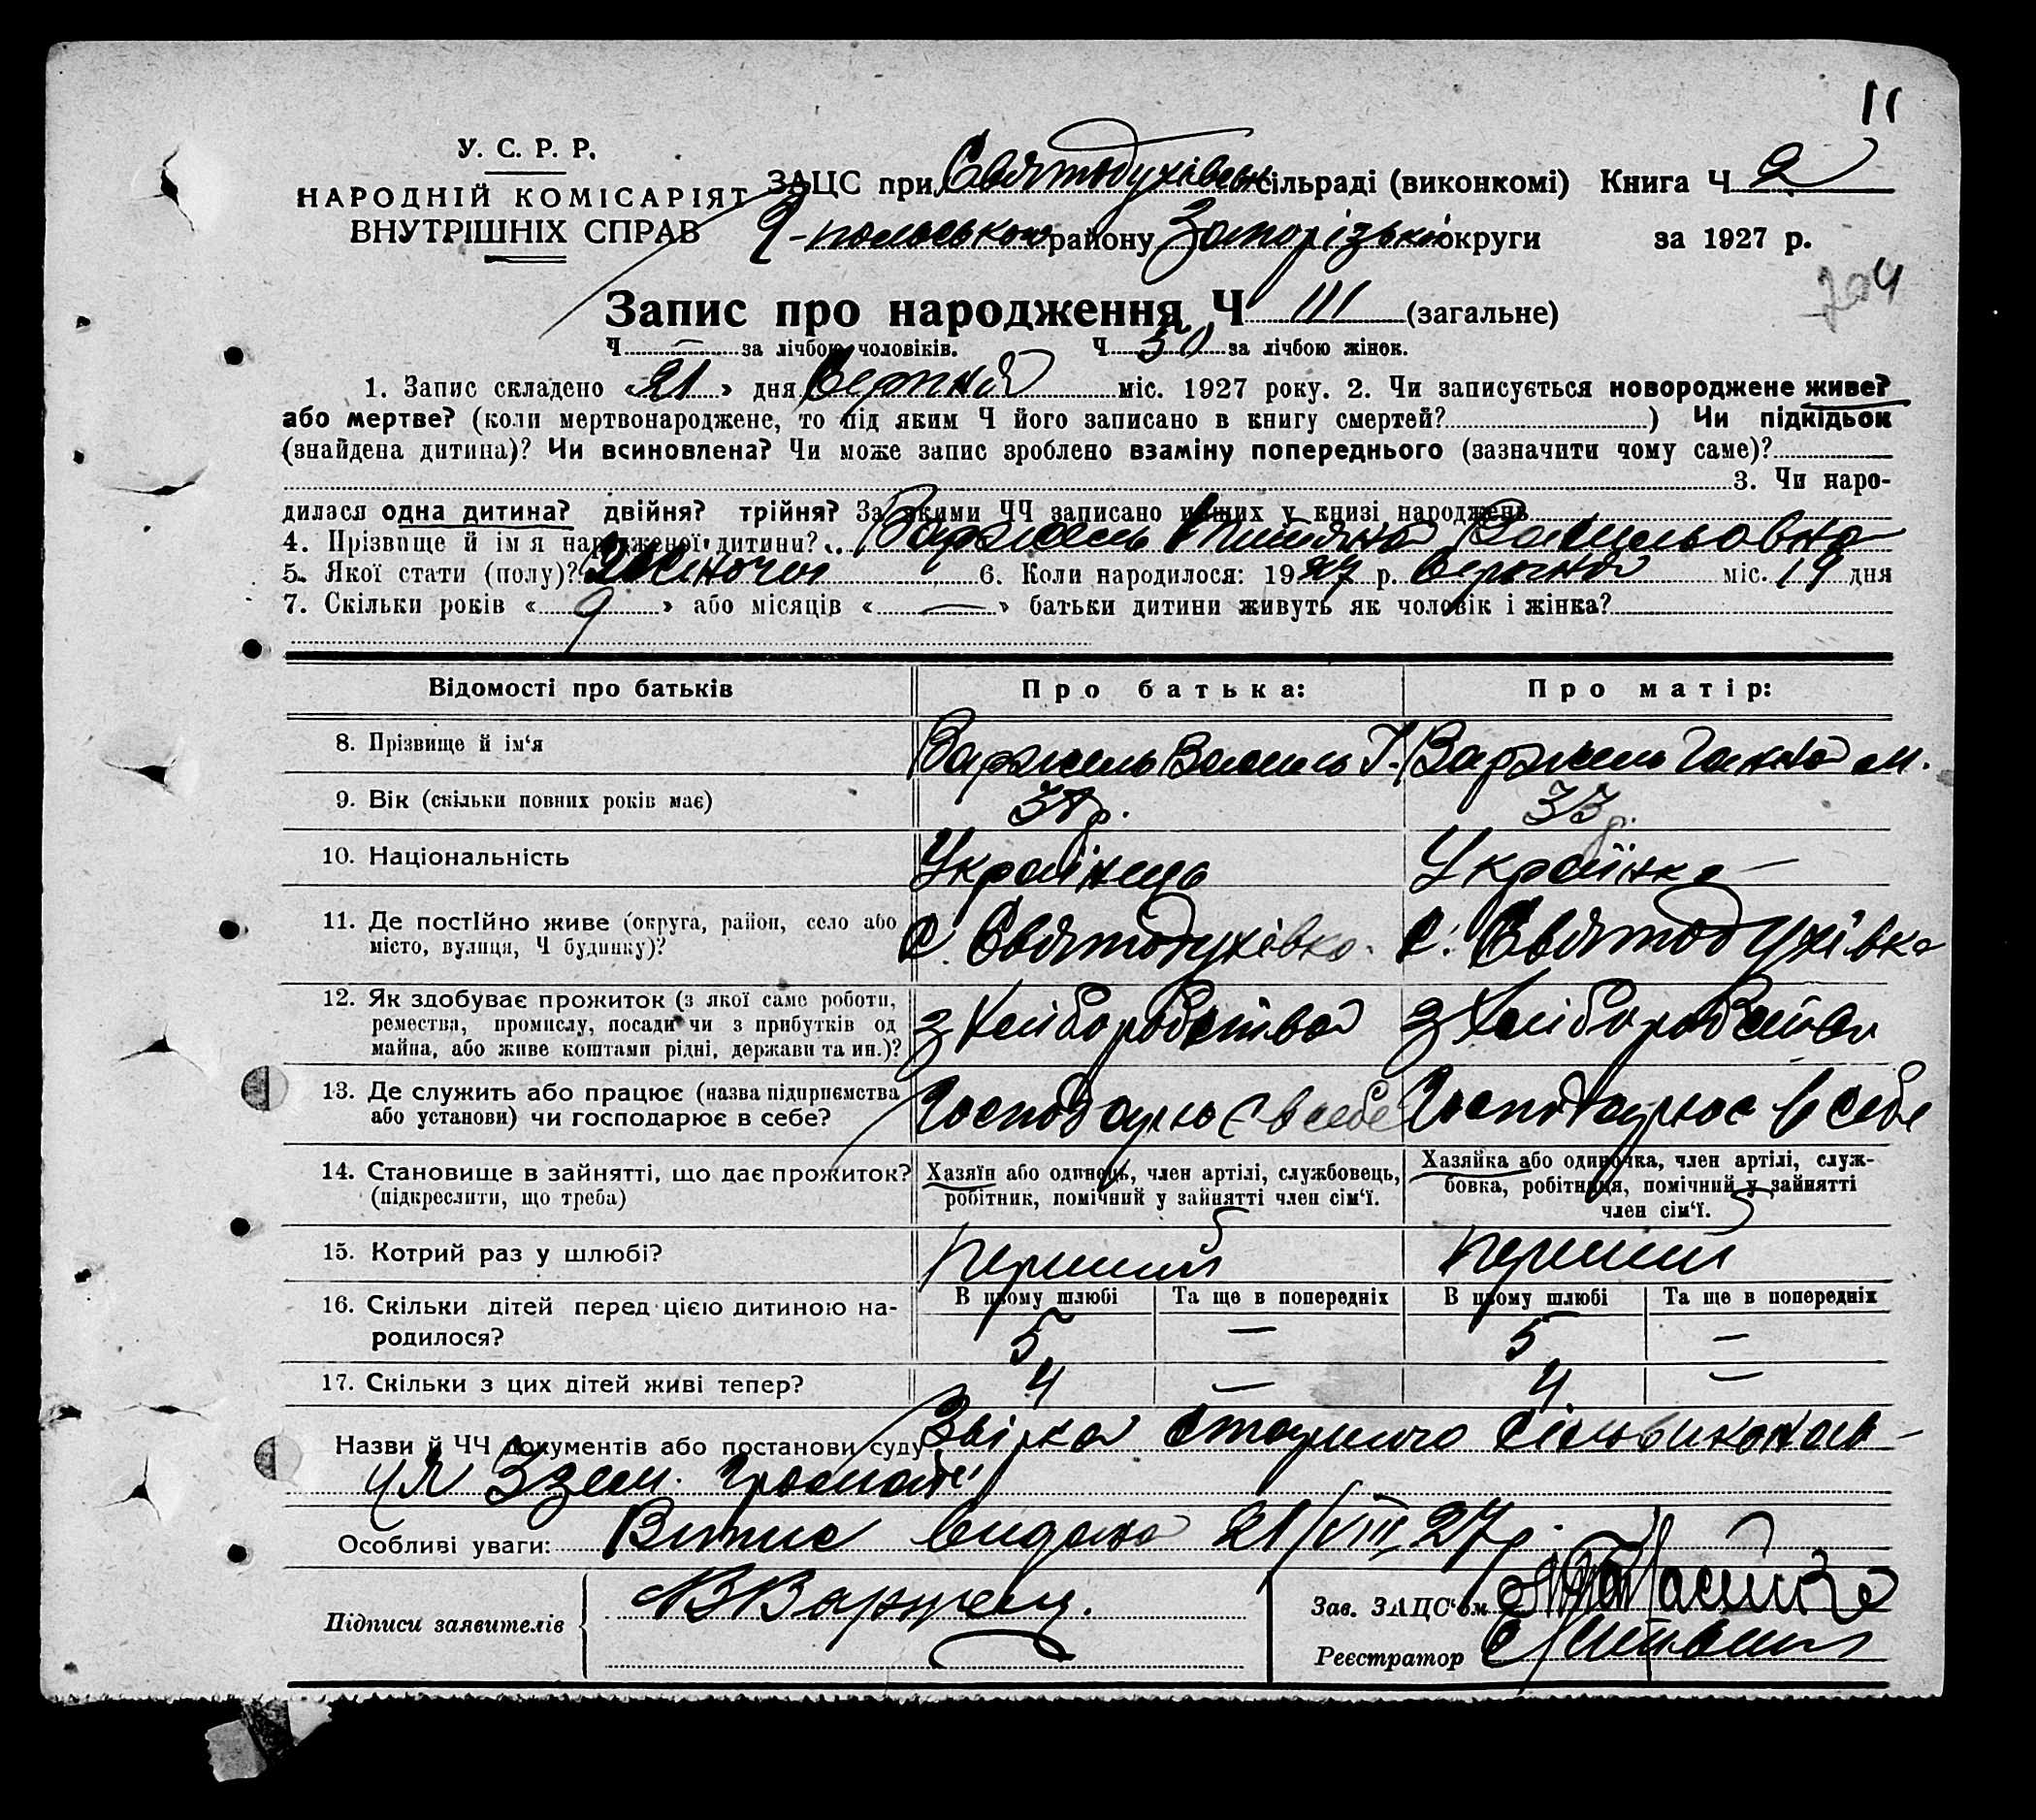 11
У. С. Р. Р.
НАРОДНІЙ КОМІСАРІЯТ
ВНУТРІШНІХ СПРАВ
ЗАЦС при Святодухівськ сільраді (виконкомі) Книга Ч 2
районy Запорізької округи за 1927 р.
704
Запис про народження Ч 111 (загальне)
Ч — за лічбою чоловіків. Ч 50 за лічбою жінок.
1. Запис складено «21» дня Серпня міс. 1927 року. 2. Чи записується новороджене живе?
або мертве? (коли мертвонароджене, то під яким Ч його записано в книгу смертей? ) Чи підкідьок
(знайдена дитина)? Чи всиновлена? Чи може запис зроблено взаміну попереднього (зазначити чому саме)?
3. Чи наро-
дилася одна дитина? двійня? трійня? За якими ЧЧ записано инших у книзі народжень
4. Прізвище й ім'я народженої дитини? Варжель Васильовна
5. Якої стати (полу)? Жіночої 6. Коли народилося: 1927 р. Серпня міс. 19 дня
7. Скільки років « 9 » або місяців « — » батьки дитини живуть як чоловік і жінка?
Відомості про батьків Про батька: Про матір:
8. Прізвище й ім'я Варжель Василь Г. Варжель Ганна М.
9. Вік (скільки повних років має) р. 33 р.
10. Національність Українець Українка
11. Де постійно живе (округа, район, село або місто, вулиця, Ч будинку)? с. Святодухівка с. Святодухівка
12. Як здобуває прожиток (з якої саме роботи, ремества, промислу, посади чи з прибутків од майна, або живе коштами рідні, держави та ин.)? з Хліборобства з Хліборобства
13. Де служить або працює (назва підприємства або установи) чи господарює в себе? Господарює в себе Господарює в себе
14. Становище в зайнятті, що дає прожиток? (підкреслити, що треба) Хазяїн або одинець, член артілі, службовець, робітник, помічний у зайнятті член сім'ї. Хазяйка або одиночка, член артілі, служ-бовка, робітниця, помічний у зайнятті член сім'ї.
15. Котрий раз у шлюбі? перший перший
В цьому шлюбі Та ще в попередніх В цьому шлюбі Та ще в попередніх
16. Скільки дітей перед цією дитиною на-родилося? 5 — 5 —
17. Скільки з цих дітей живі тепер? 4 — 4 —
Назви й ЧЧ документів або постанови суду Звірка Старшого Сільвиконав-
ця 3 зем. громади
Особливі уваги: Витис видана 21/VIII 27 р.
Підписи заявителів В Варжель
Зав. ЗАЦС'ом
Реєстратор